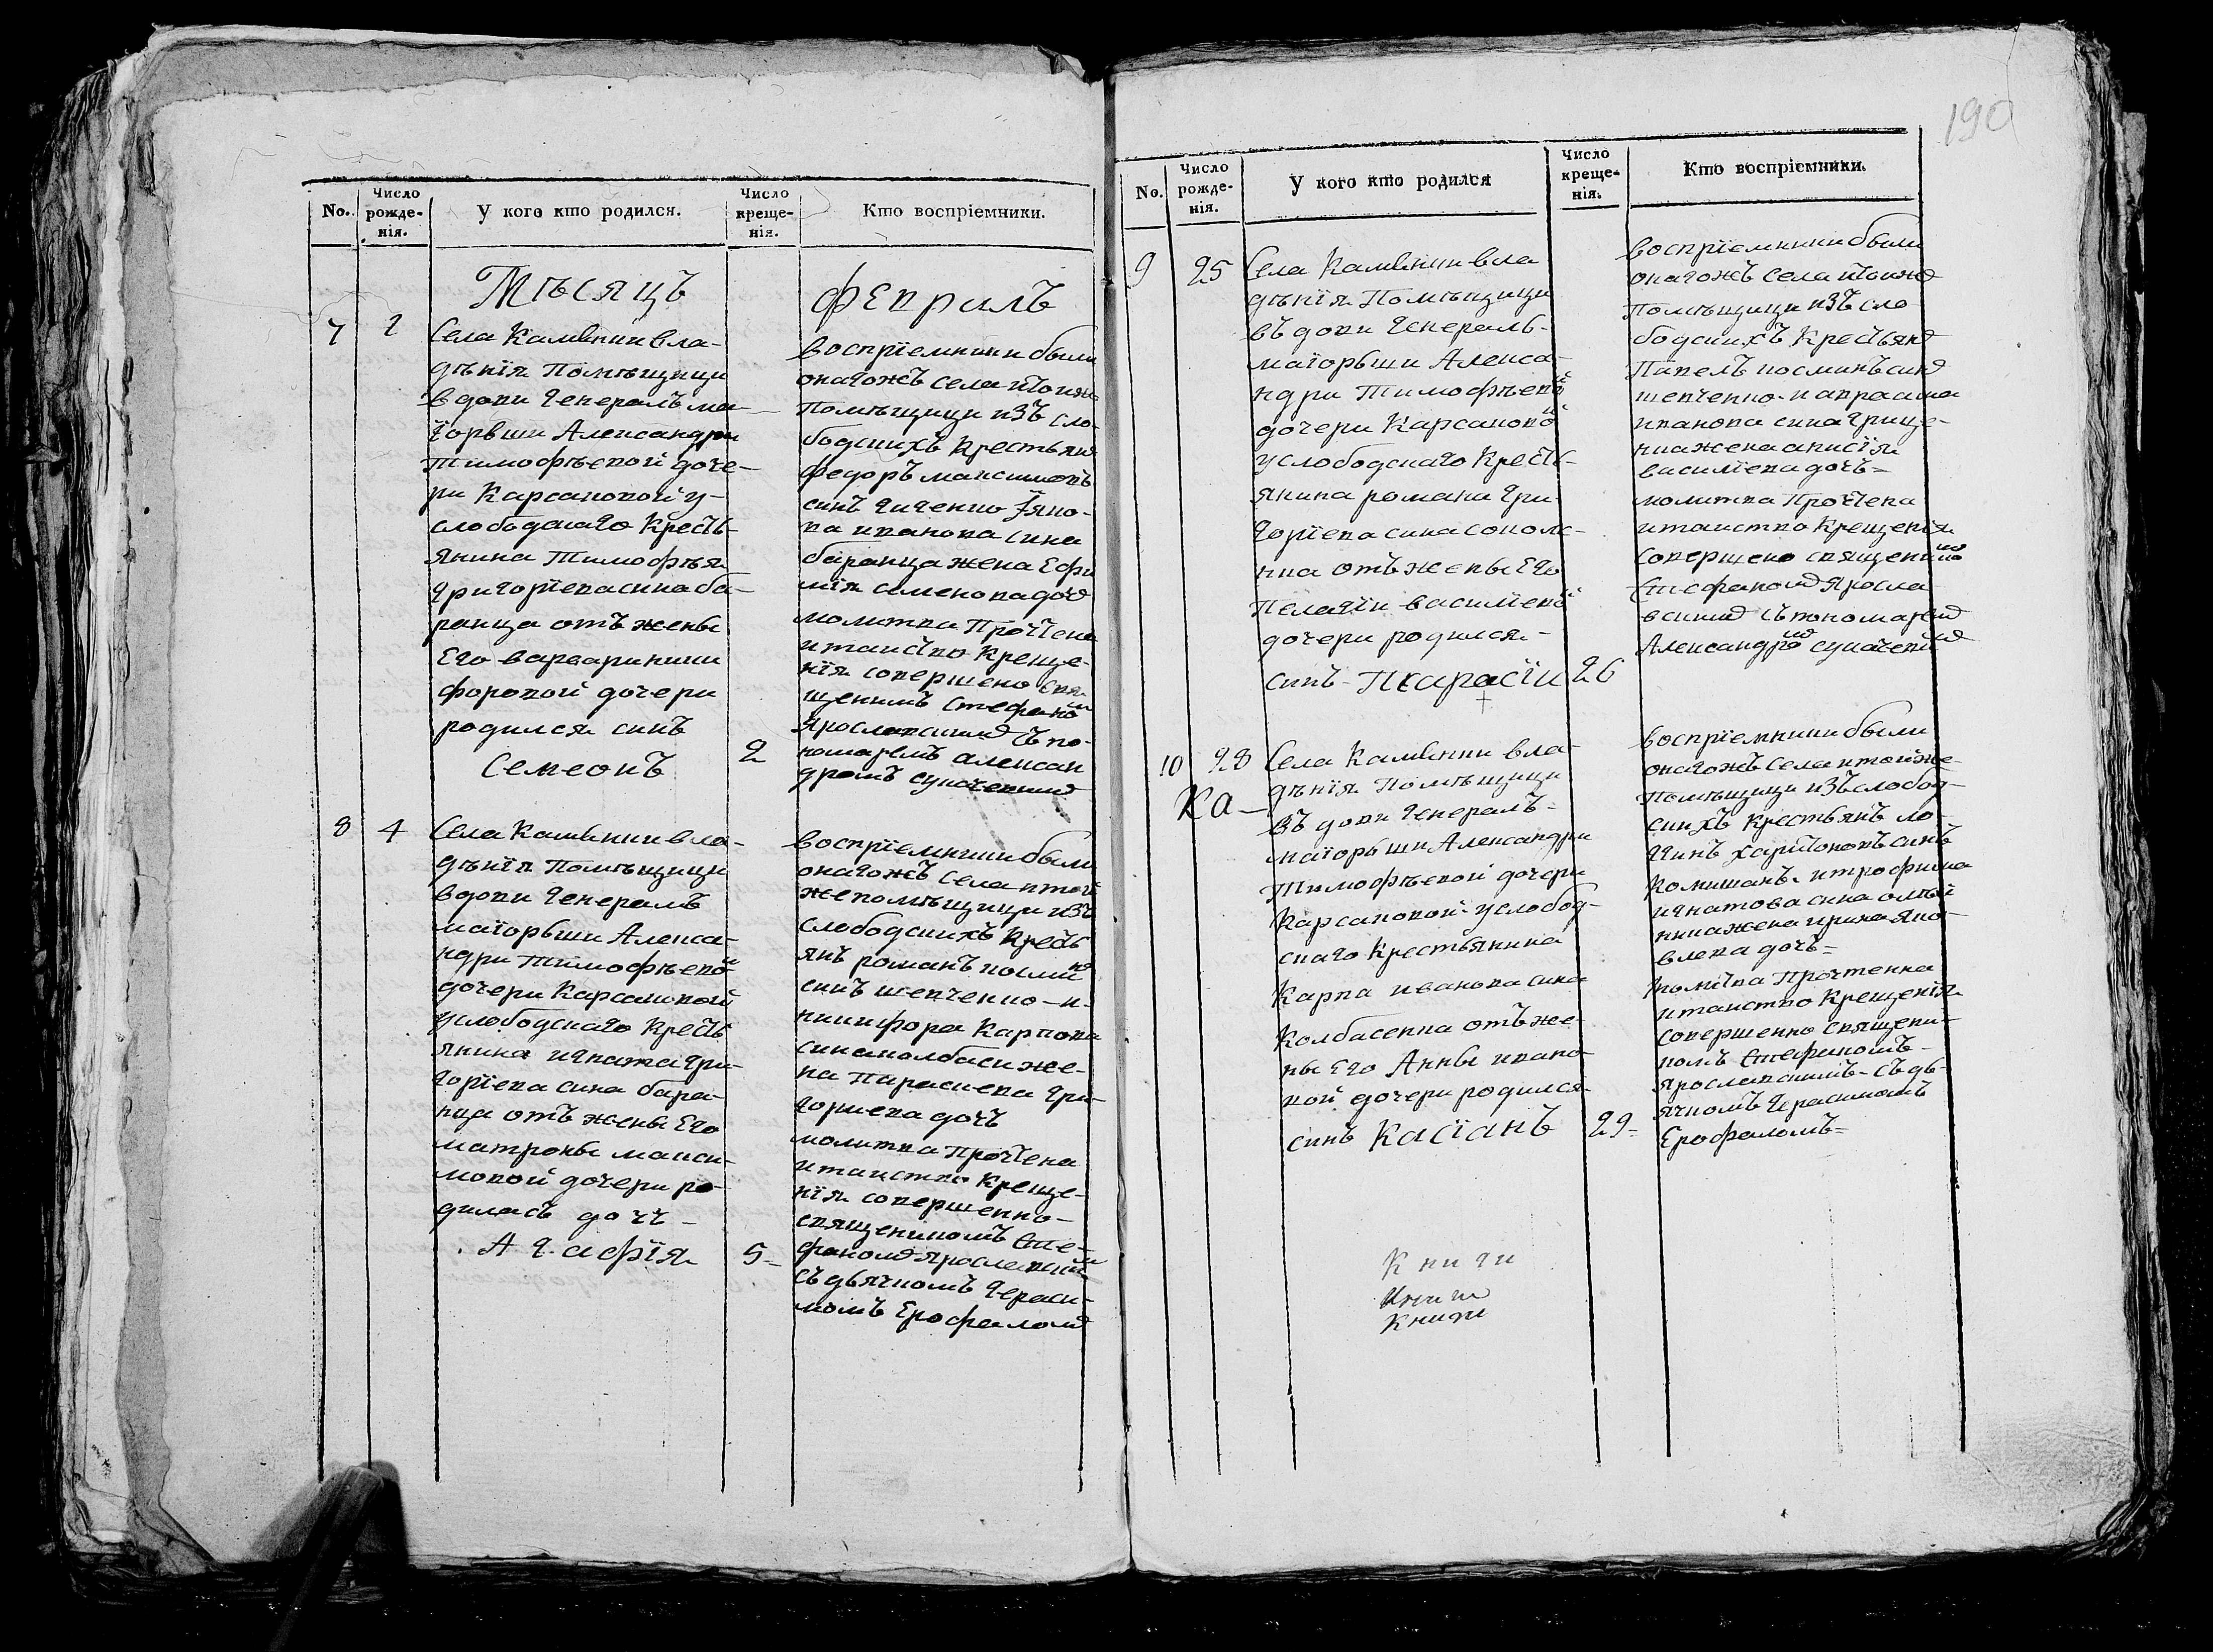 190
No.
Число рожде-нія.
У кого кто родился.
Число креще-нія.
Кто воспріемники.
Мѣсяцъ
Февраль
7
1
Села Камѣнки вла-
дѣнїя Помѣщицы
вдовы Генералъ ма-
їорши Александры
Тимофѣевой доче-
ри Карсановой у-
слободскаго Кресть-
янина Тимофѣя
Григорїева сына ба-
ранца отъ жены
Его варвары ники
форовой дочери
родился сынъ
Семеонъ
2
воспрїемники были
онагожъ села итояж
Помѣщицы изъ сло-
бодскихъ Крестьянъ
федоръ максимовъ
сынъ
ва иванова сына
баранца жена Ефи
мїя семенова дочь
молитва Прочтена
и таинство Креще-
нїя совершено свя-
щеникомъ Стефаномъ
Ярославскимъ съ по-
номаремъ алексан
дромъ
8
4
Села Камѣнки вла-
дѣнїя Помѣщицы
вдовы Генералъ
маїорьши Алекса-
ндры тимофѣевой
дочери Карсановой
услободскаго Кресть
янина игната Гри-
горїева сына бара-
нца отъ жены Его
матроны макси-
мовой дочери ро-
дилась дочь -
Агафїя
5
воспрїемники были
онагожъ села и той
же помѣщицы изъ
слободскихъ Кресть
янъ романъ космин
сынъ шевченко - и
никифора Карпова
сына колбасы же-
на Параскева Гри-
горїева дочь
молитва Прочтена
и таинство Креще-
нїя совершенно -
священикомъ Сте-
фаномъ Ярославским
съ дьячкомъ Гераси-
момъ Ерофаломъ
No.
Число рожде-нія.
У кого кто родился
Число креще-нія.
Кто воспріемники.
9
25
Села Камѣнки вла
дѣнїя Помѣщицы
въдовы Генераль-
маїорьши Алекса-
ндры Тимофѣевой
дочери Карсановой
услободскаго Кресть-
янина романа Гри-
горїева сына
отъ жены Его
Пелагїи василїевой
дочери родился -
сынъ -
26
воспрїемники были
онагожъ села итояжъ
Помѣщицы изъ сло
бодскихъ Крестьянъ
Павелъ косминъ сынъ
шевченко - и
иванова сына Грице-
нка жена анисїя
василїева дочь =
молитва Прочтена
и таинство Крещенїя
совершено священикомъ
Стефаномъ Яросла
вскимъ съ пономаремъ
Александромъ
10
28
Ка -
Села Камѣнки вла-
дѣнїя Помѣщицы
въдовы Генералъ -
маїорьши Александры
Тимофѣевой дочери
Карсановой услобод-
скаго Крестьянина
Карпа иванова сына
Колбасенка отъ же-
ны Его Анны ивано-
вой дочери родился
сынъ Касїанъ
29 =
воспрїемники были
онагожъ села и тойже -
Помѣщицы изъ слобод-
скихъ Крестьянъ ло-
гинъ харитоновъ сынъ
и трофима
игнатова сына
жена ирина яко-
влева дочь =
молитва Прочтенна
и таинство Крещенїя
совершенно священи-
комъ Стефаномъ -
Ярославскимъ - съ дь-
ячкомъ Герасимомъ
Ерофаломъ =
Книги
Книги
Книги